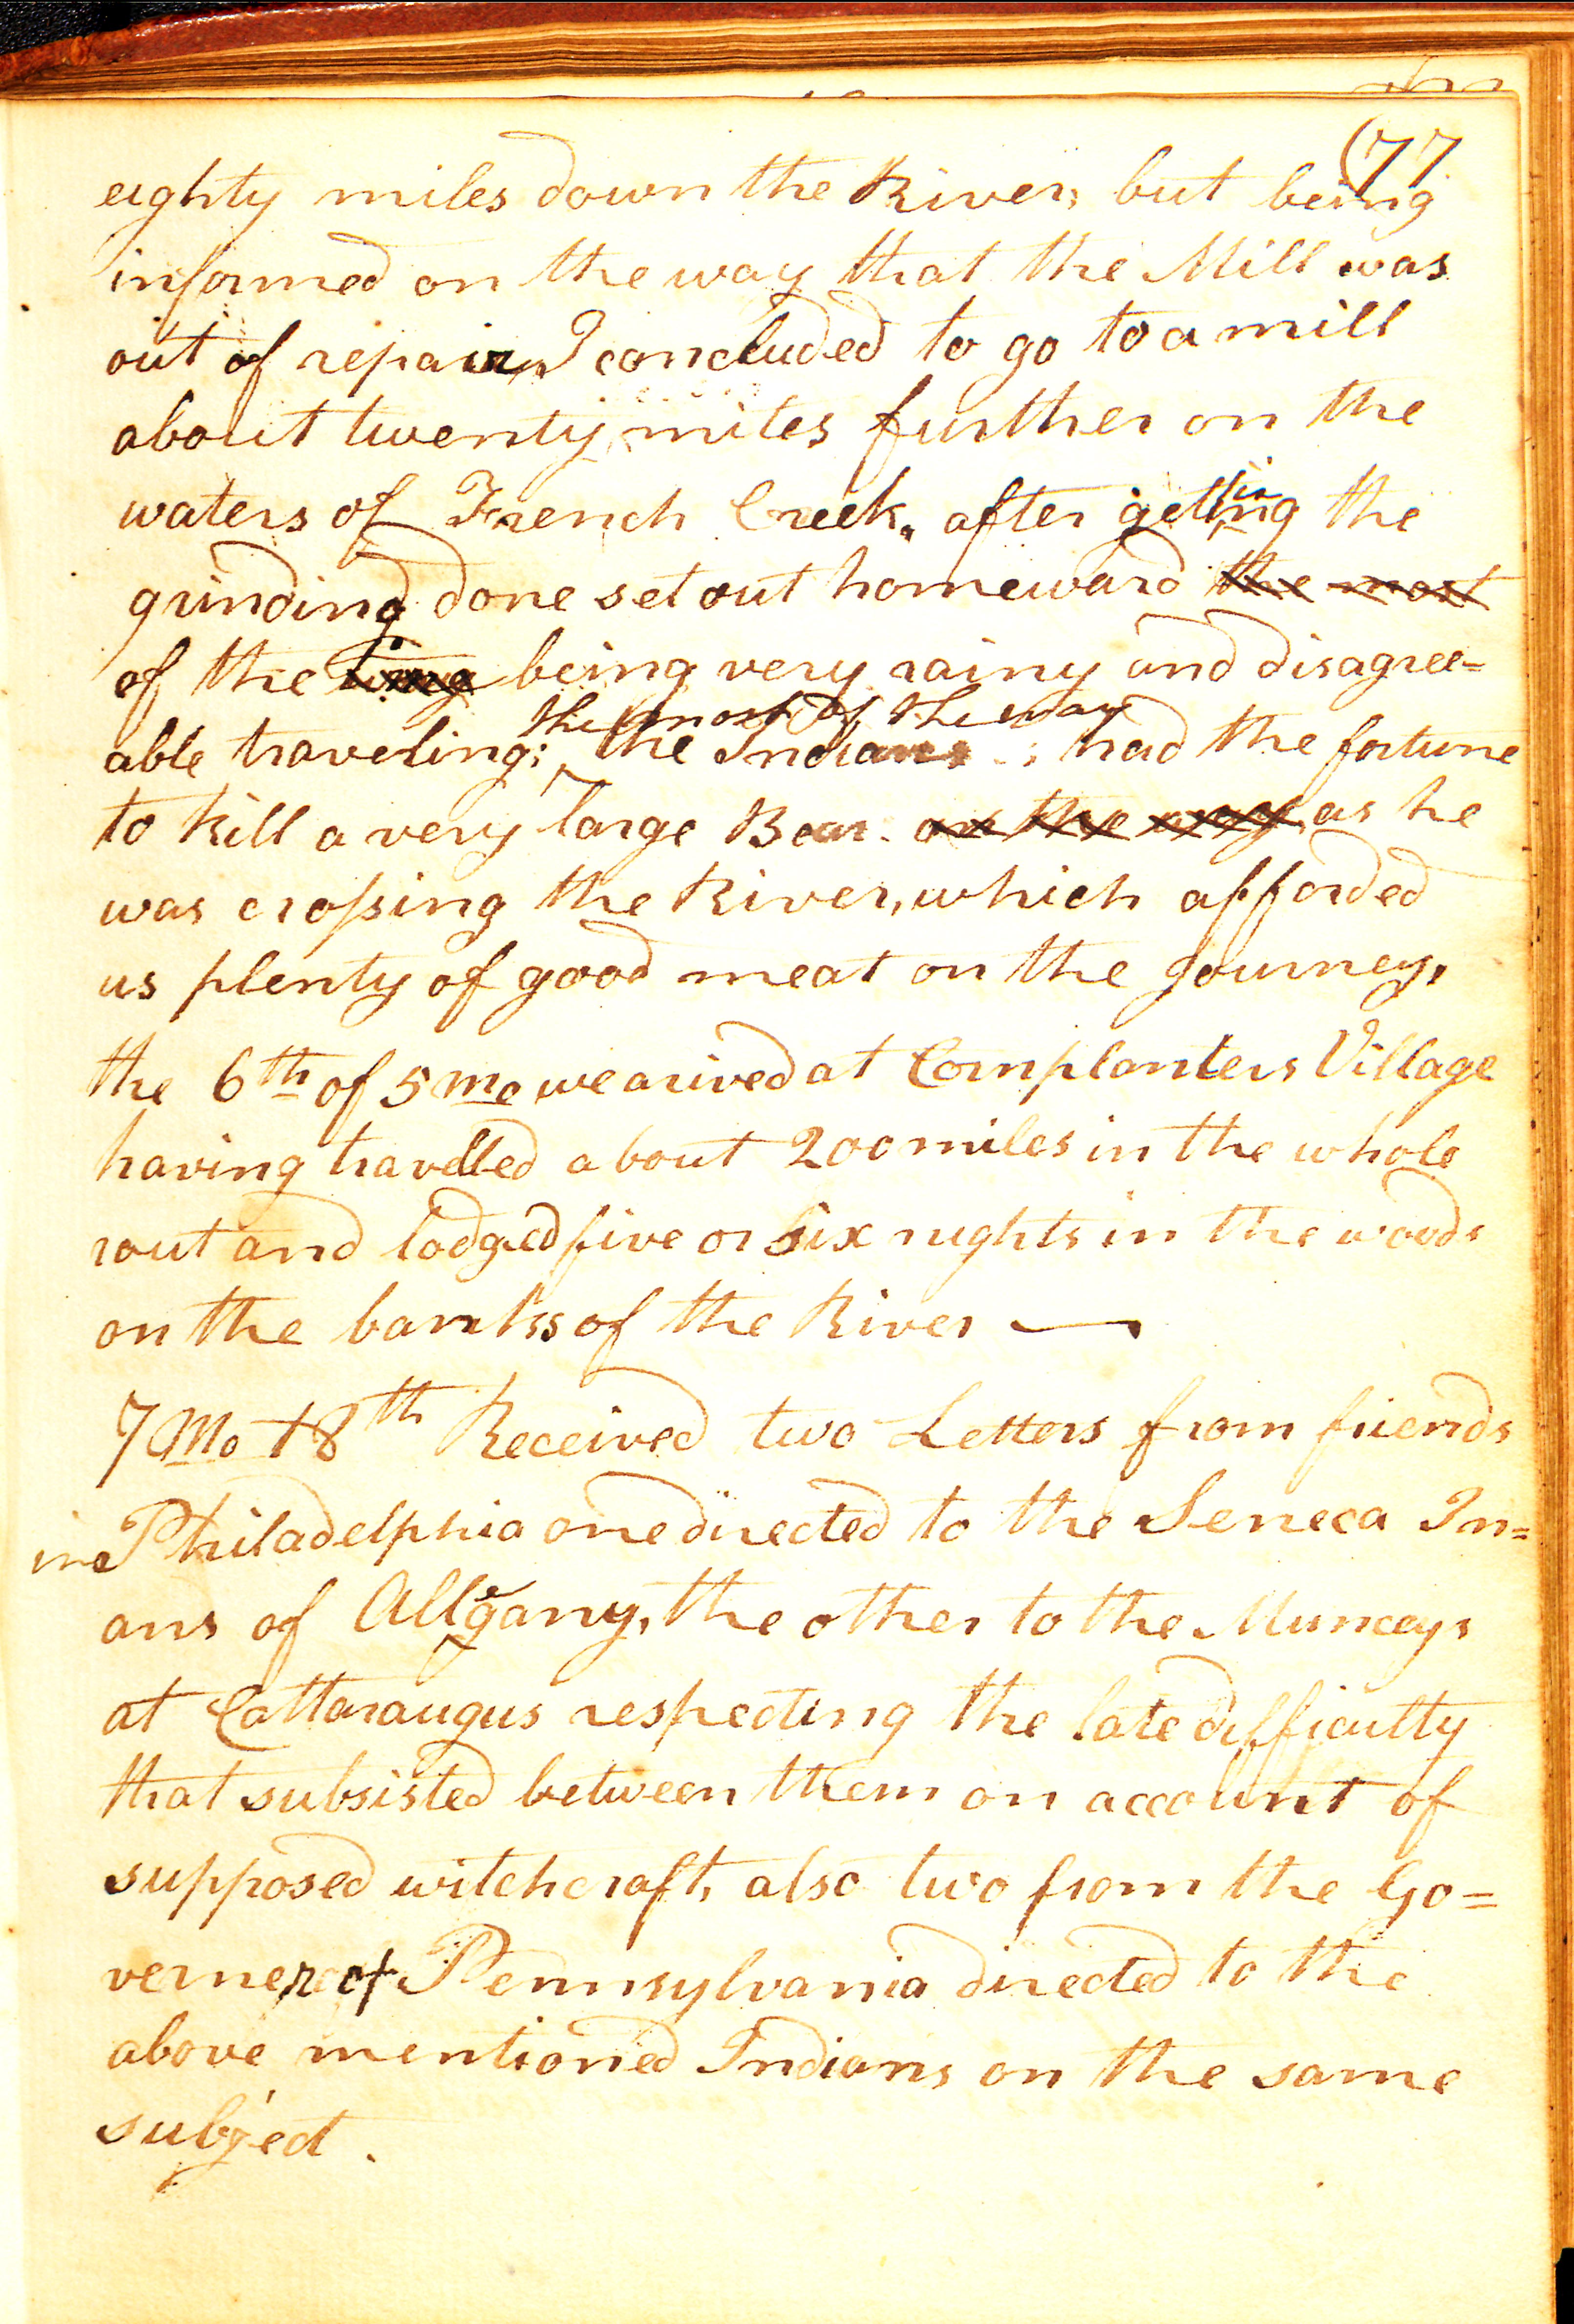 (77
eighty miles down the River, but being
informed on the way that the Mill was
out of repair, I concluded to go to a mill
about twenty miles further on the
waters of French Creek, after getting the
grinding done set out homeward the most
of the being very rainy and disagree=
the most of the way
able traveling; the Indians had the fortune
to kill a very large Bear. on the way as he
was crossing the River, which afforded
us plenty of good meat on the Journey,
the 6th of 5 mo we arived at Cornplanters Village
having travelled about 200 miles in the whole
rout and lodged five or six nights in the woods
on the banks of the River —
7 Mo 18th Received two Letters from friends
in Philadelphia one directed to the Seneca In=
ans of Allegany, the other to the Munceys
at Cattaraugus respecting the late difficulty
that subsisted between them on account of
supposed witchcraft, also two from the Go=
verner of Pennsylvania directed to the
above mentioned Indians on the same
subject.